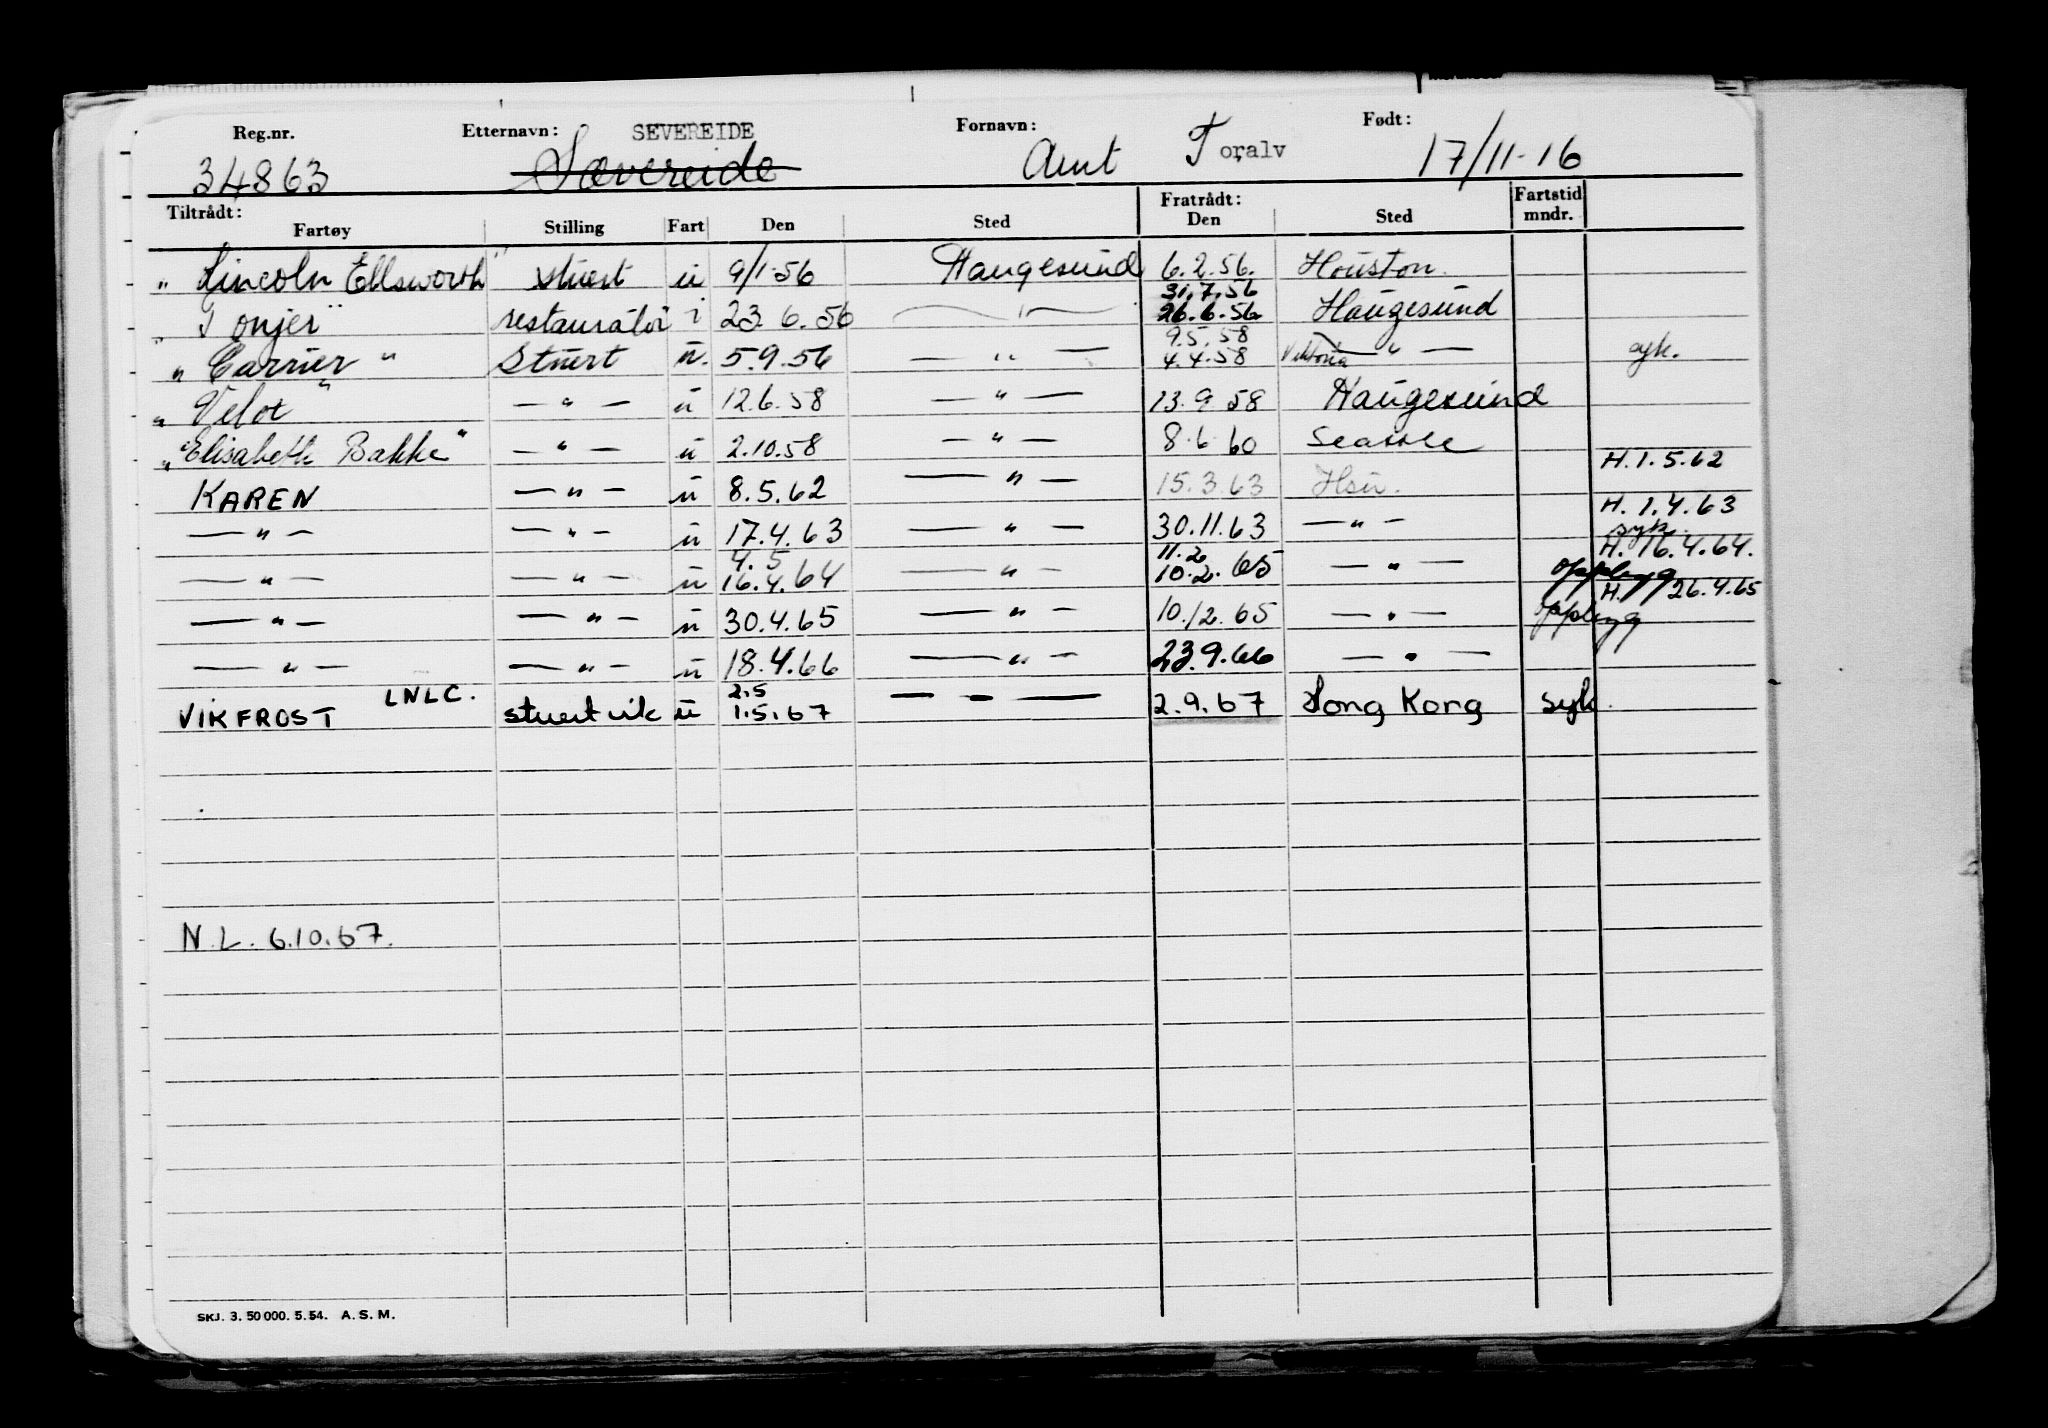 Reg.nr. Etternavn: SEVEREIDE Fornavn: Født:
34863 Sævereide Arnt Toralv 17/11-16
Tiltrådt: Fratrådt: Fartstid
Fartøy Stilling Fart Den Sted Den Sted mndr.
" Lincoln Ellsworth" stuert u 9/1-56 Haugesund 6.2.56. Houston.
31.7.56
" Tonjer" restauratør i 23.6.56 — " — 26.6.56 Haugesund
9.5.58
" Carrier " Stuert u. 5.9.56 — " — 4.4.58 Viktoria — " — syk.
" Velox " — " — u 12.6.58 — " — 13.9.58 Haugesund
" Elisabeth Bakke" — " — u 2.10.58 — " — 8.6.60 Seattle
H. 1.5.62
KAREN — " — u 8.5.62 — " — 15.3.63 Hsu.
H. 1.4.63
— " — — " — u 17.4.63 — " — 30.11.63 — " — syk.
4.5 11.2 H. 16.4.64.
— " — — " — u 16.4.64 — " — 10.2.65 — " — opplegg
H. 26.4.65
— " — — " — u 30.4.65 — " — 10.12.65 — " — opplegg
— " — — " — u 18.4.66 — " — 23.9.66 — " —
LNLC. 2.5
VIKFROST stuert vik u 1.5.67 — " — 2.9.67 Hong Kong syk.
N.L. 6.10.67.
SKJ. 3. 50 000. 5. 54. A. S. M.